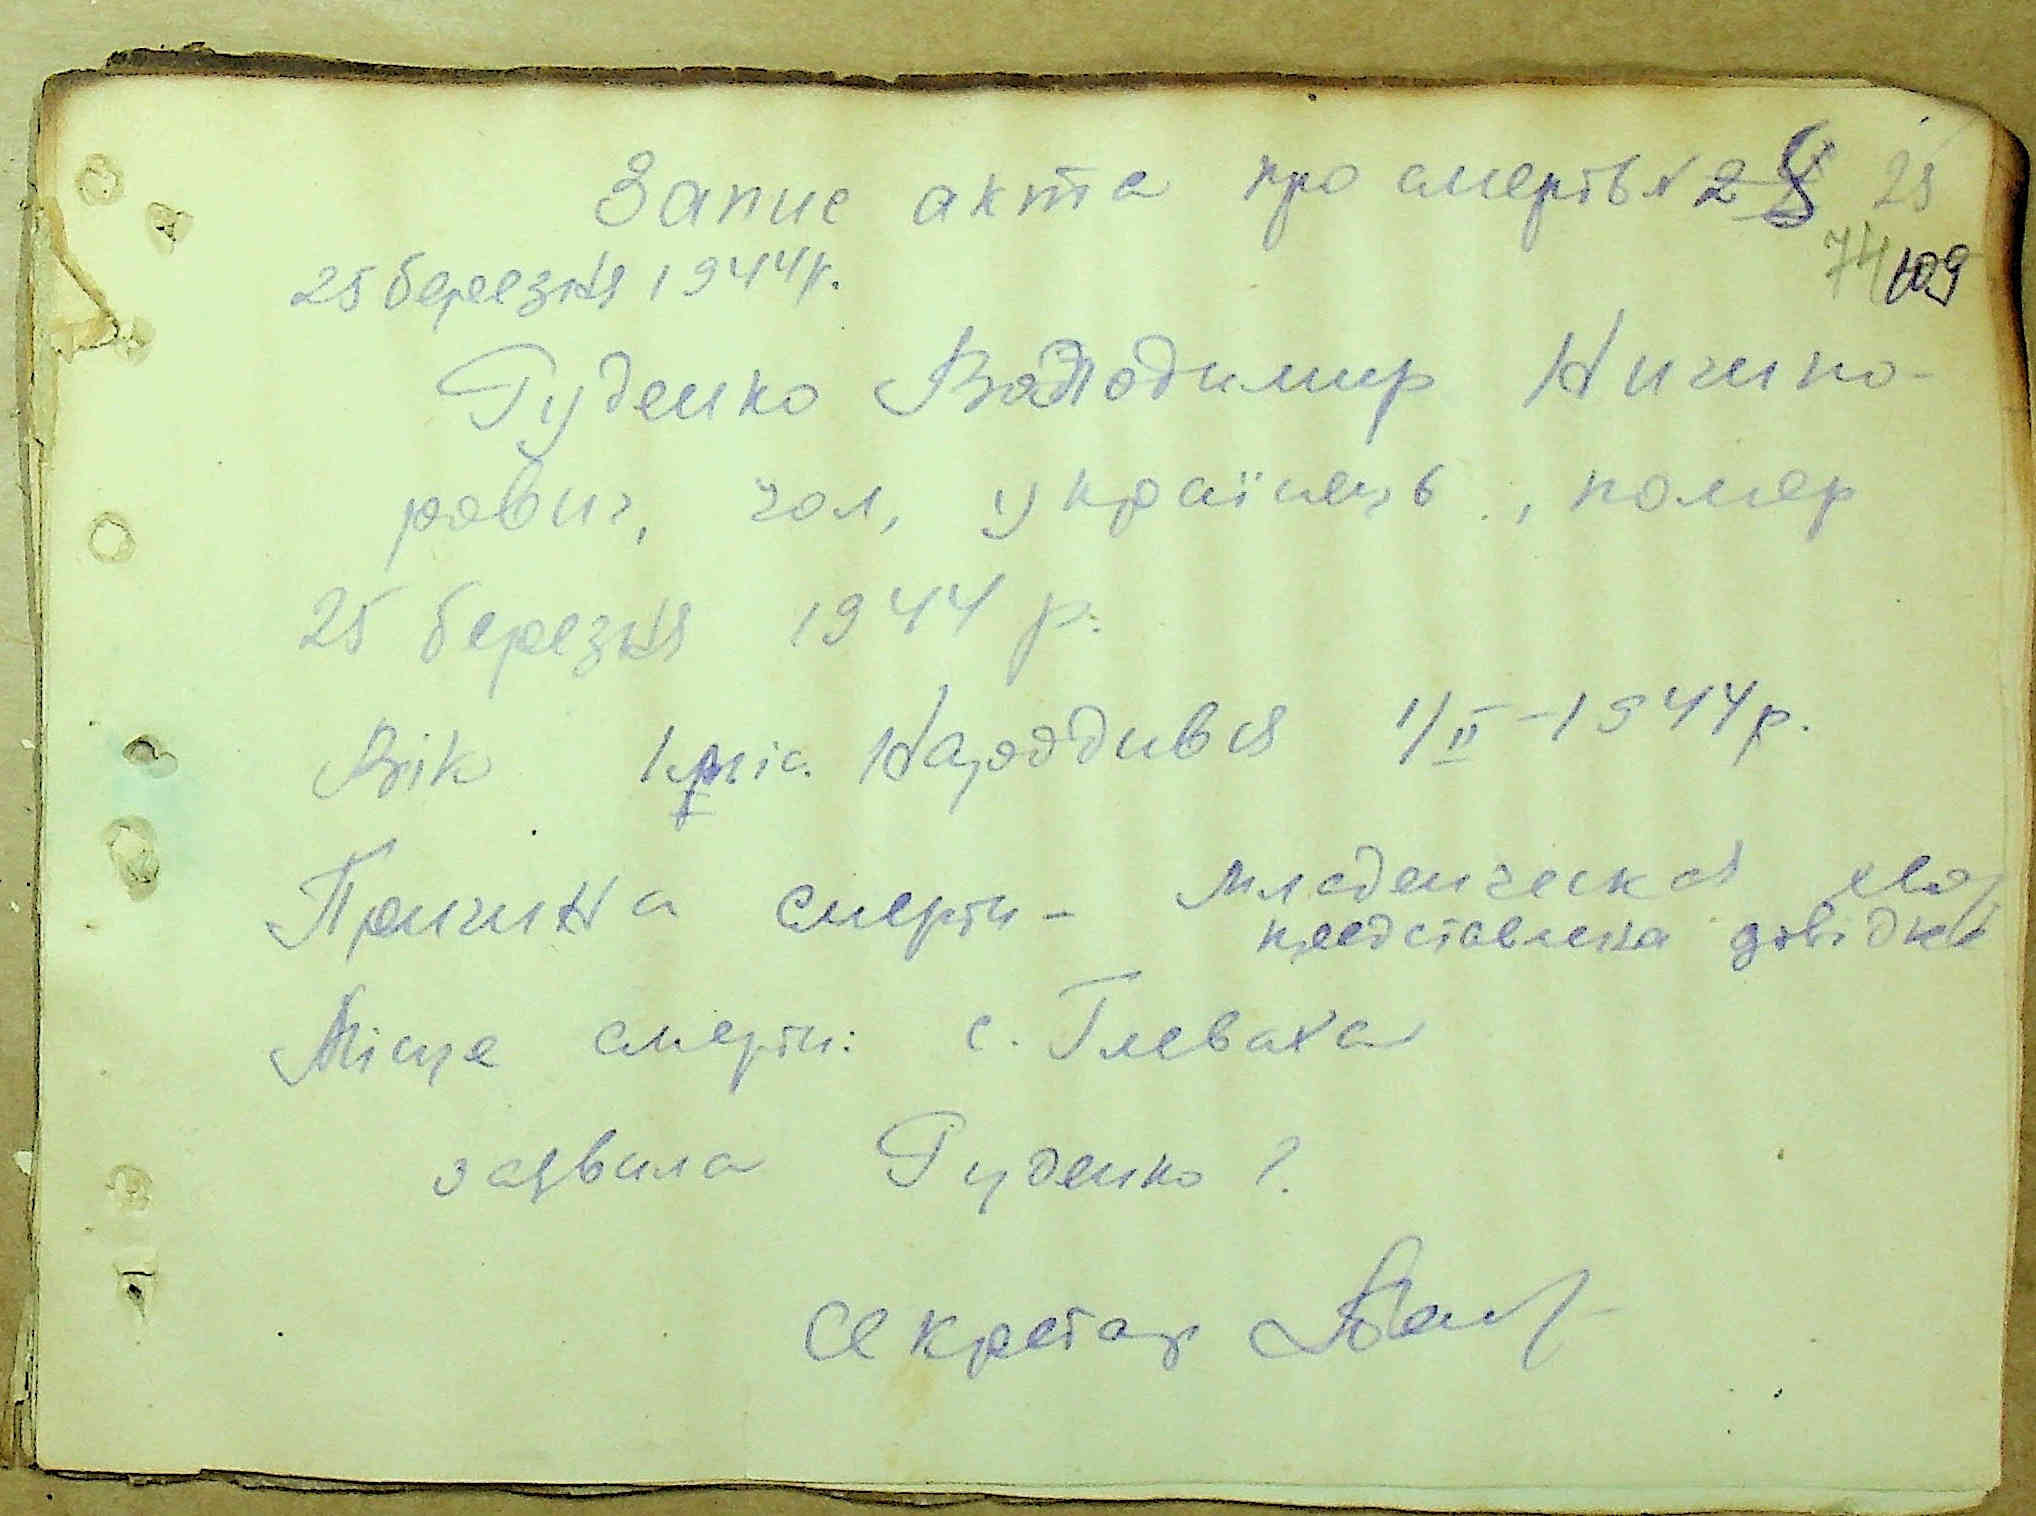 Запис акта про смерть № 28 25
74 109
25 березня 1944 р.
Руденко Володимир Ничипо-
рович, чол, українець, помер
25 березня 1944 р.
Вік 1 міс. Народився 1/II-1944 р.
Причина смерти - младенческая
представлена довідка
Місце смерти: с. Глеваха
заявила Руденко
Секретар